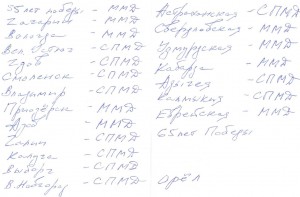 55 лет победы - ММД
Гагарин - ММД
Вологда - ММД
Вел. Устюг - СПМД
Гдов - СПМД
Смоленск - СПМД
Владимир - СПМД
Приозерск - ММД
Азов - ММД
- СПМД
Калуга - СПМД
Выборг - СПМД
В. Новгород - СПМД
Астраханская - СПМД
Свердловская - ММД
Удмуртская - ММД
Кабарда - ММД
Адыгея - СПМД
Калмыкия - СПМД
Еврейская - ММД
65 лет Победы
Орёл